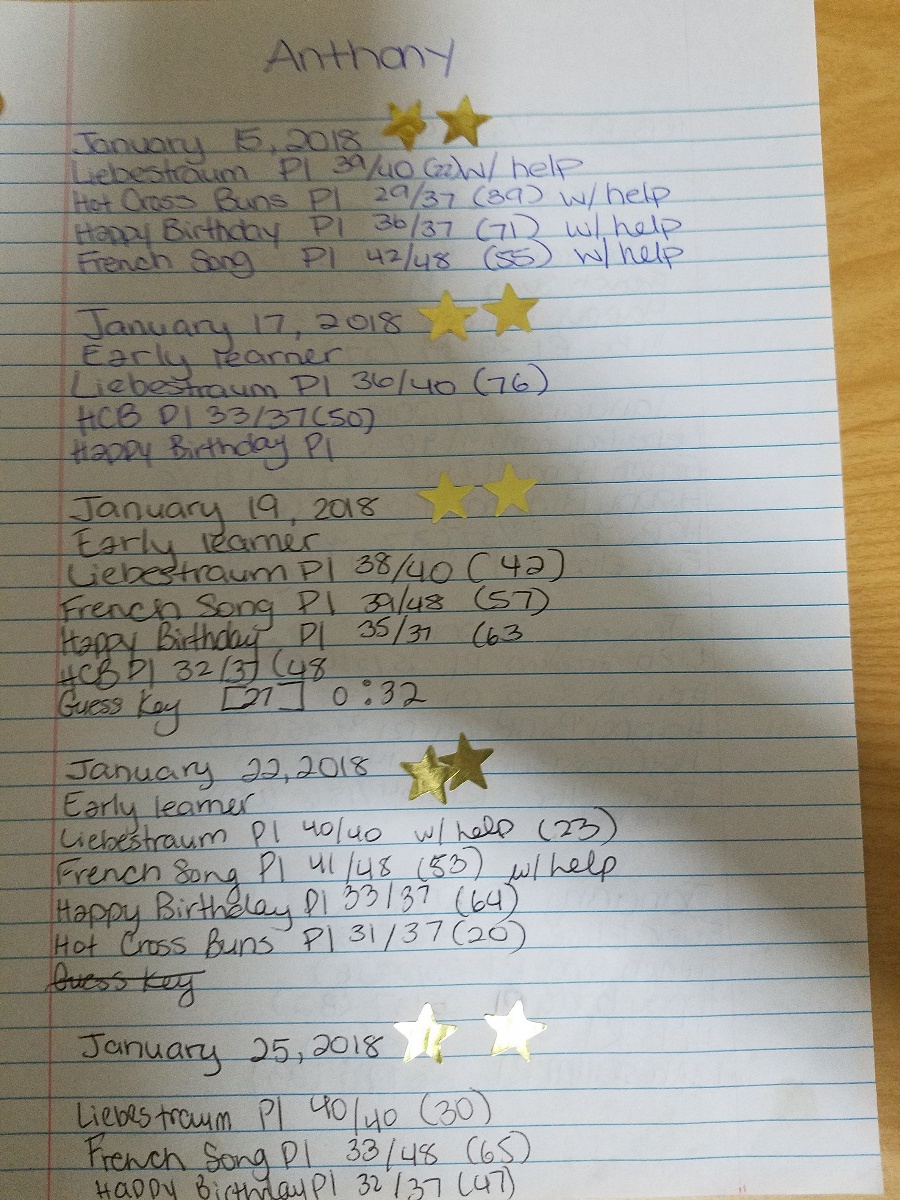 Anthony
January 15, 2018
Liebestraum P1 39/40 (22) w/ help
Hot Cross Buns P1 29/37 (39) w/ help
Happy Birthday P1 36/37 (71) w/ help
French Song P1 42/48 (55) w/ help
January 17, 2018
Early learner
Liebestraum P1 36/40 (76)
HCB P1 33/37 (50)
Happy Birthday P1
January 19, 2018
Early learner
Liebestraum P1 38/40 (42)
French Song P1 39/48 (57)
Happy Birthday P1 35/37 (63
HCB P1 32/37 (48
Guess Key [27] 0:32
January 22, 2018
Early learner
Liebestraum P1 40/40 w/ help (23)
French Song P1 41/48 (53) w/ help
Happy Birthday P1 33/37 (64)
Hot Cross Buns P1 31/37 (20)
Guess Key
January 25, 2018
Liebestraum P1 40/40 (30)
French Song P1 33/48 (65)
Happy Birthday P1 32/37 (47)